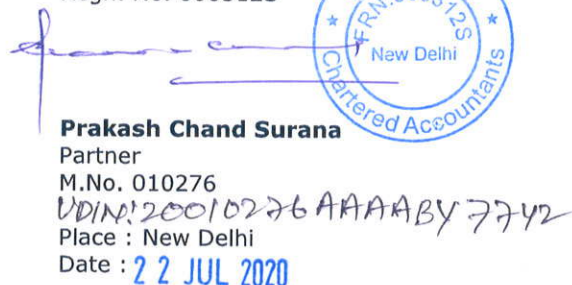 FRN:
12S
New Delhi
Chartered Accountants
Prakash Chand Surana
Partner
M.No. 010276
UDIN: 20010276AAAABY7742
Place : New Delhi
Date : 22 JUL 2020